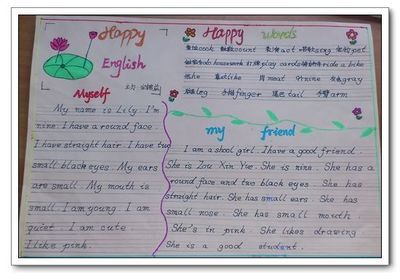 Happy
English
Myself
My name is Lily. I'm
nine. I have a round face.
I have straight hair. I have two
small black eyes. My ears
are small. My mouth is
small. I am young. I am
quiet. I am cute
I like pink.
Happy words
cook count act sing pet
housework play cards ride a hike
she like meat nine gray
leg finger tail arm
my friend
I am a shool girl. I have a good friend.
She is Zou Xin Yue. She is nine. She has a
round face and two black eyes. She has
straight hair. She has small ears. She has
small nose. She has small mouth.
She's in pink. She likes drawing.
She is a good student.